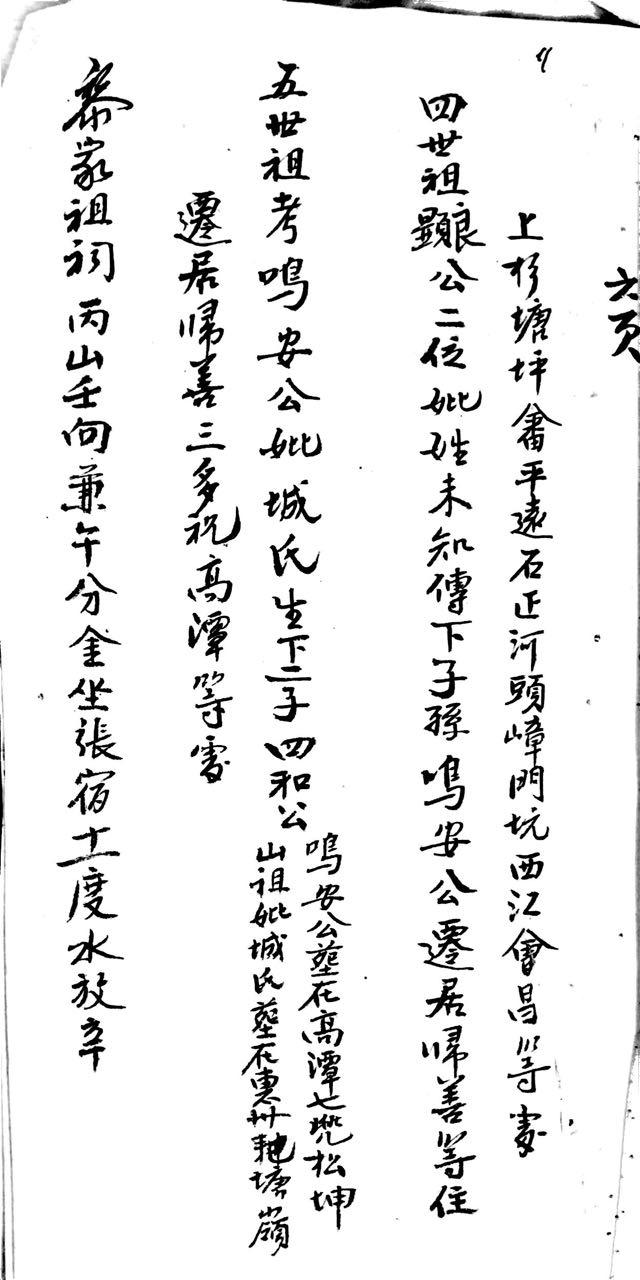 六页
上杉塘坪畬平遠石正河頭嶂門坑西江會昌等處
四世祖顯良公二位妣姓未知傳下子孫鳴安公遷居帰善等住
五世祖考鳴安公妣城氏生下二子四和公
鳴安公墓在高潭七兜松坤
山祖妣城氏墓在惠州 塘嶺
遷居帰善三多祝高潭等處
黎家祖祠丙山壬向兼午分金坐張宿十一度水放辛